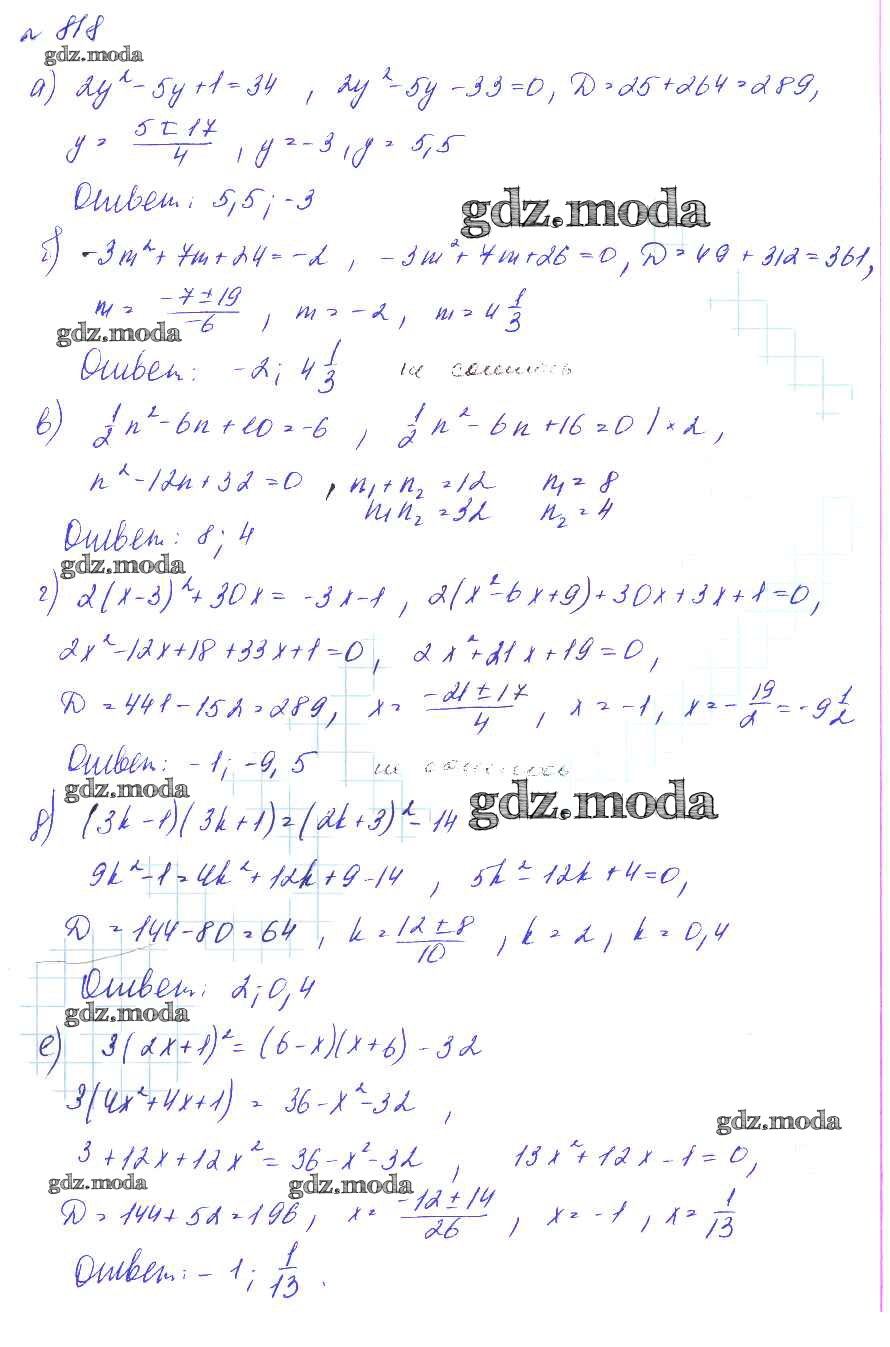 № 818
gdz.moda
а) 2y² - 5y + 1 = 34 , 2y² - 5y - 33 = 0, D = 25 + 264 = 289,
y = (5 ± 17)/4 , y = -3, y = 5,5
Ответ: 5,5; -3
gdz.moda
б) -3m² + 7m + 24 = -2 , -3m² + 7m + 26 = 0, D = 49 + 312 = 361,
m = (-7 ± 19)/-6 , m = -2, m = 4 1/3
gdz.moda
Ответ: -2; 4 1/3 не сошлось
в) 1/2 n² - 6n + 10 = -6 , 1/2 n² - 6n + 16 = 0 | × 2,
n² - 12n + 32 = 0 , n₁ + n₂ = 12 n₁ = 8
n₁n₂ = 32 n₂ = 4
Ответ: 8; 4
gdz.moda
г) 2(x-3)² + 30x = -3x - 1 , 2(x² - 6x + 9) + 30x + 3x + 1 = 0,
2x² - 12x + 18 + 33x + 1 = 0, 2x² + 21x + 19 = 0,
D = 441 - 152 = 289, x = (-21 ± 17)/4 , x = -1, x = - 19/2 = -9 1/2
Ответ: -1; -9,5 не сошлось
gdz.moda
gdz.moda
д) (3k-1)(3k+1) = (2k+3)² - 14
9k² - 1 = 4k² + 12k + 9 - 14 , 5k² - 12k + 4 = 0,
D = 144 - 80 = 64 , k = (12 ± 8)/10 , k = 2, k = 0,4
Ответ: 2; 0,4
gdz.moda
е) 3(2x+1)² = (6-x)(x+6) - 32
3(4x² + 4x + 1) = 36 - x² - 32 ,
gdz.moda
3 + 12x + 12x² = 36 - x² - 32 , 13x² + 12x - 1 = 0,
gdz.moda
gdz.moda
D = 144 + 52 = 196, x = (-12 ± 14)/26 , x = -1 , x = 1/13
Ответ: -1; 1/13 .